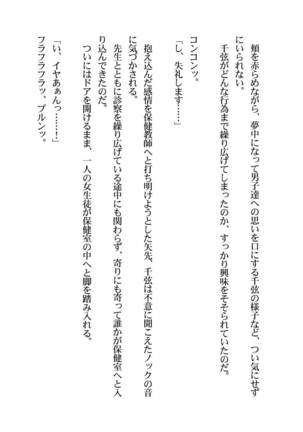 頬を赤らめながら、夢中になって男子達への思いを口にする千弦の様子など、つい気にせず
にいられない。
千弦がどんな行為まで繰り広げてしまったのか、すっかり興味をそそられていたのだ。
コンコンッ。
「し、失礼します……」
抱え込んだ感情を保健教師へと打ち明けようとした矢先、千弦は不意に聞こえたノックの音
に気づかされる。
先生とともに診察を繰り広げている途中にも関わらず、寄りにも寄って誰かが保健室へと入
り込んできたのだ。
ついにはドアを開けるまま、一人の女生徒が保健室の中へと脚を踏み入れる。
「い、イヤぁあんっ………！」
フラフラフラッ、プルンッ。